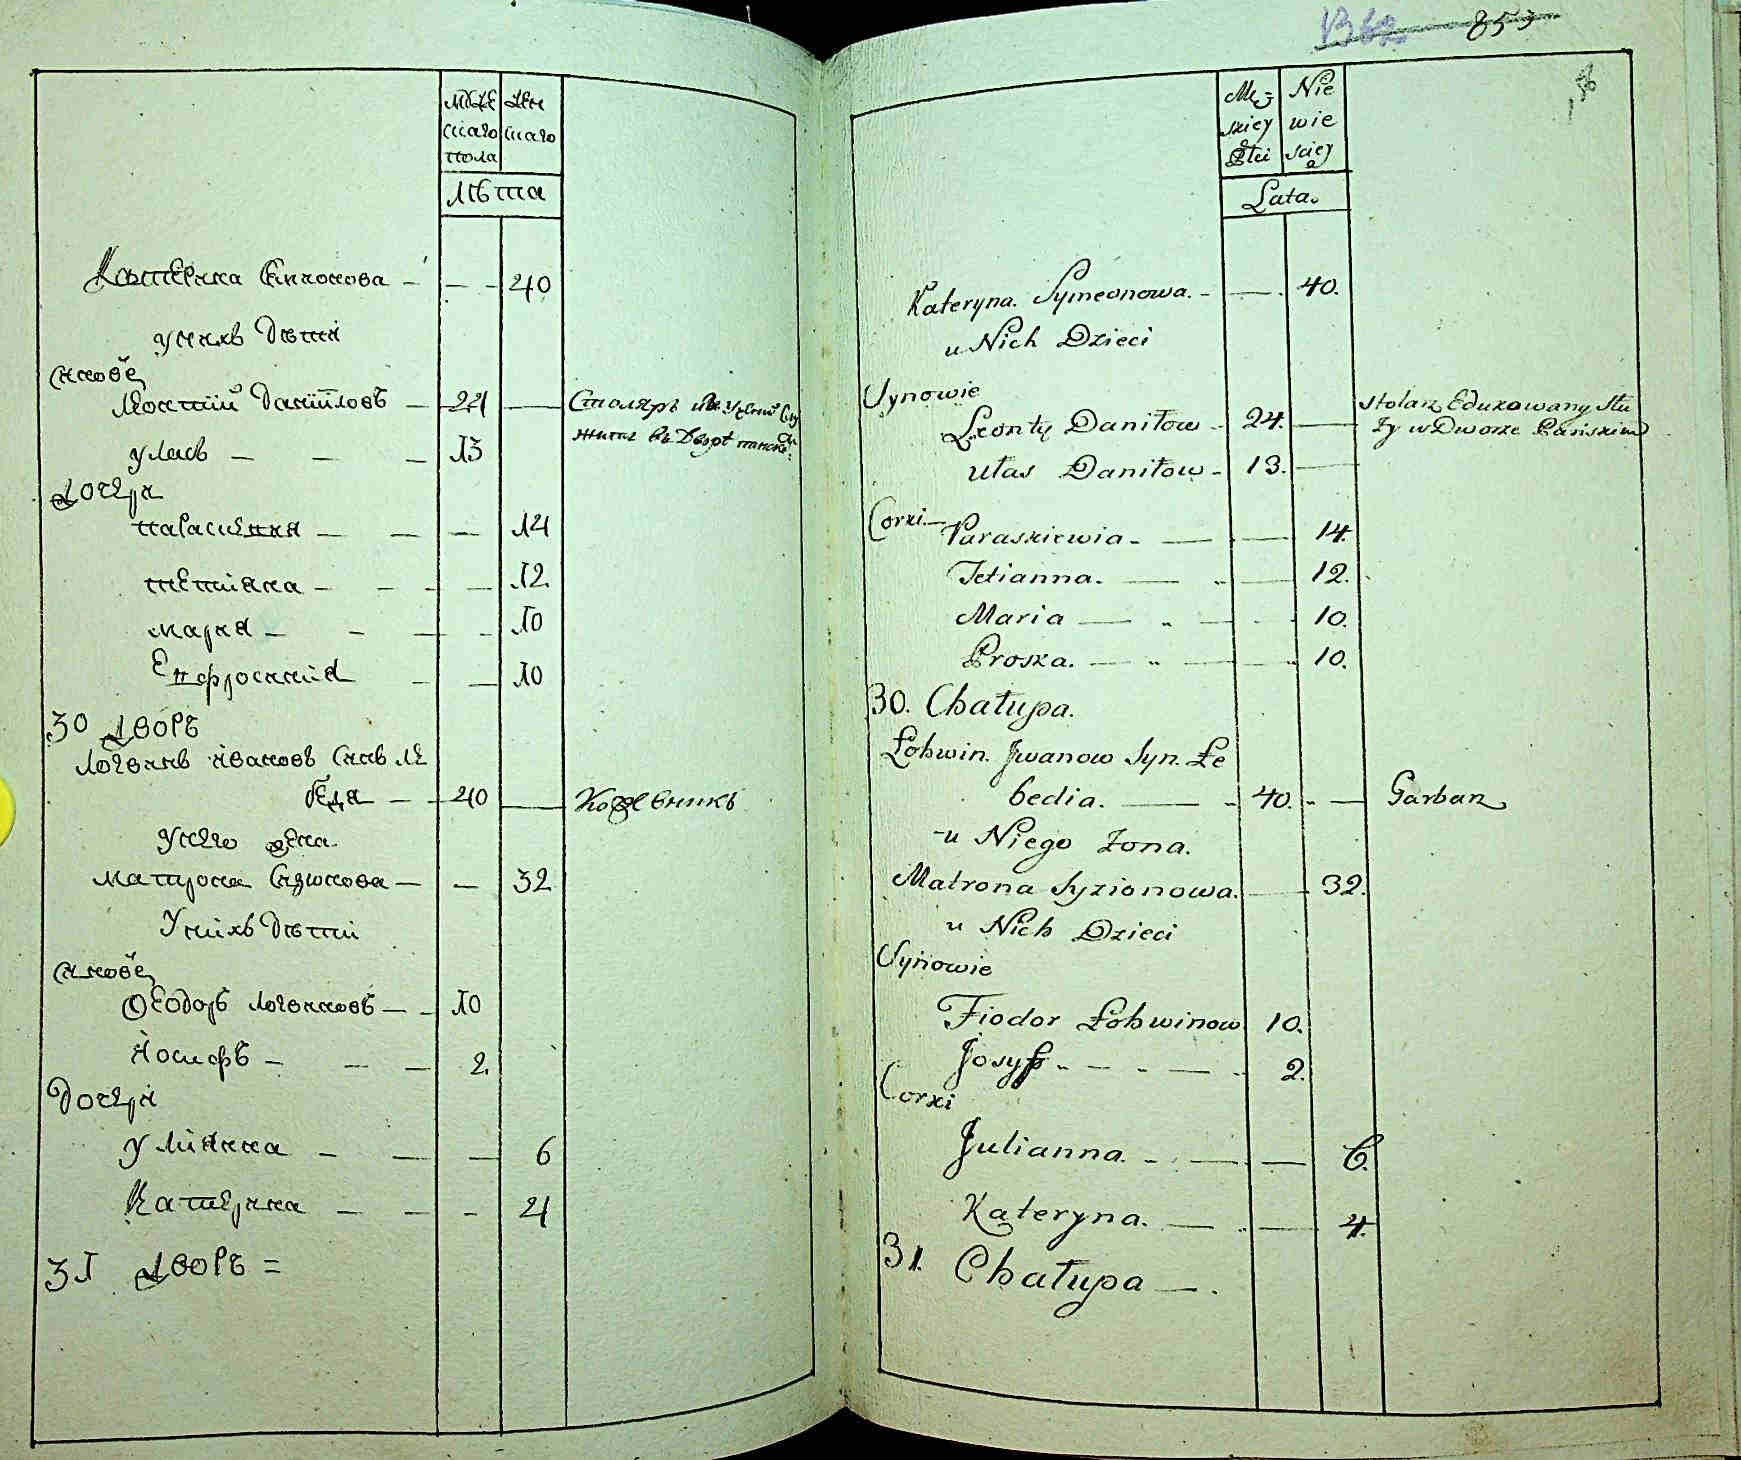 853
мȣже жен
скаго скаго
пола
лѣта
Катерина Симонова — — — 40
у нихъ дѣти
синовѣ
Леонтий Данїиловъ — 24 — Столяръ
житъ въ Дворѣ
Уласъ — — — 13
Дочери
Параскевия — — — 14
Тетияна — — — 12.
Мария — — — 10
Епфросиния — — 10
30 Дворъ
Логвинъ Ивановъ синъ Ле
бедя — — 40 — Кожевникъ
у него жена
Матрона Сизионова — — 32
У нихъ дѣти
синовѣ
Ѳеодоръ Логвиновъ — — 10
Иосифъ — — — 2.
Дочери
Улияна — — — 6
Катерина — — — 4
31 Дворъ =
Mę= Nie
skiey wie
Płci sciey
Lata.
Kateryna. Symeonowa. — — 40.
u Nich Dzieci
Synowie
Leonty Daniłow — 24. — Stolarz Edukowany Słu
ży w Dworze Pańskim
Ułas Daniłow — 13. —
Corki — Paraskiewia — — — 14.
Tetianna. — — 12.
Maria — — 10.
Proska. — — 10.
30. Chałupa.
Łohwin. Jwanow Syn. Łe
bedia. — — 40. — Garbarz
u Niego Żona.
Matrona Syzionowa. — 32.
u Nich Dzieci
Synowie
Fiodor Łohwinow 10.
Josyff — — — 2.
Corki
Julianna. — — — 6.
Kateryna. — — 4.
31. Chałupa — .